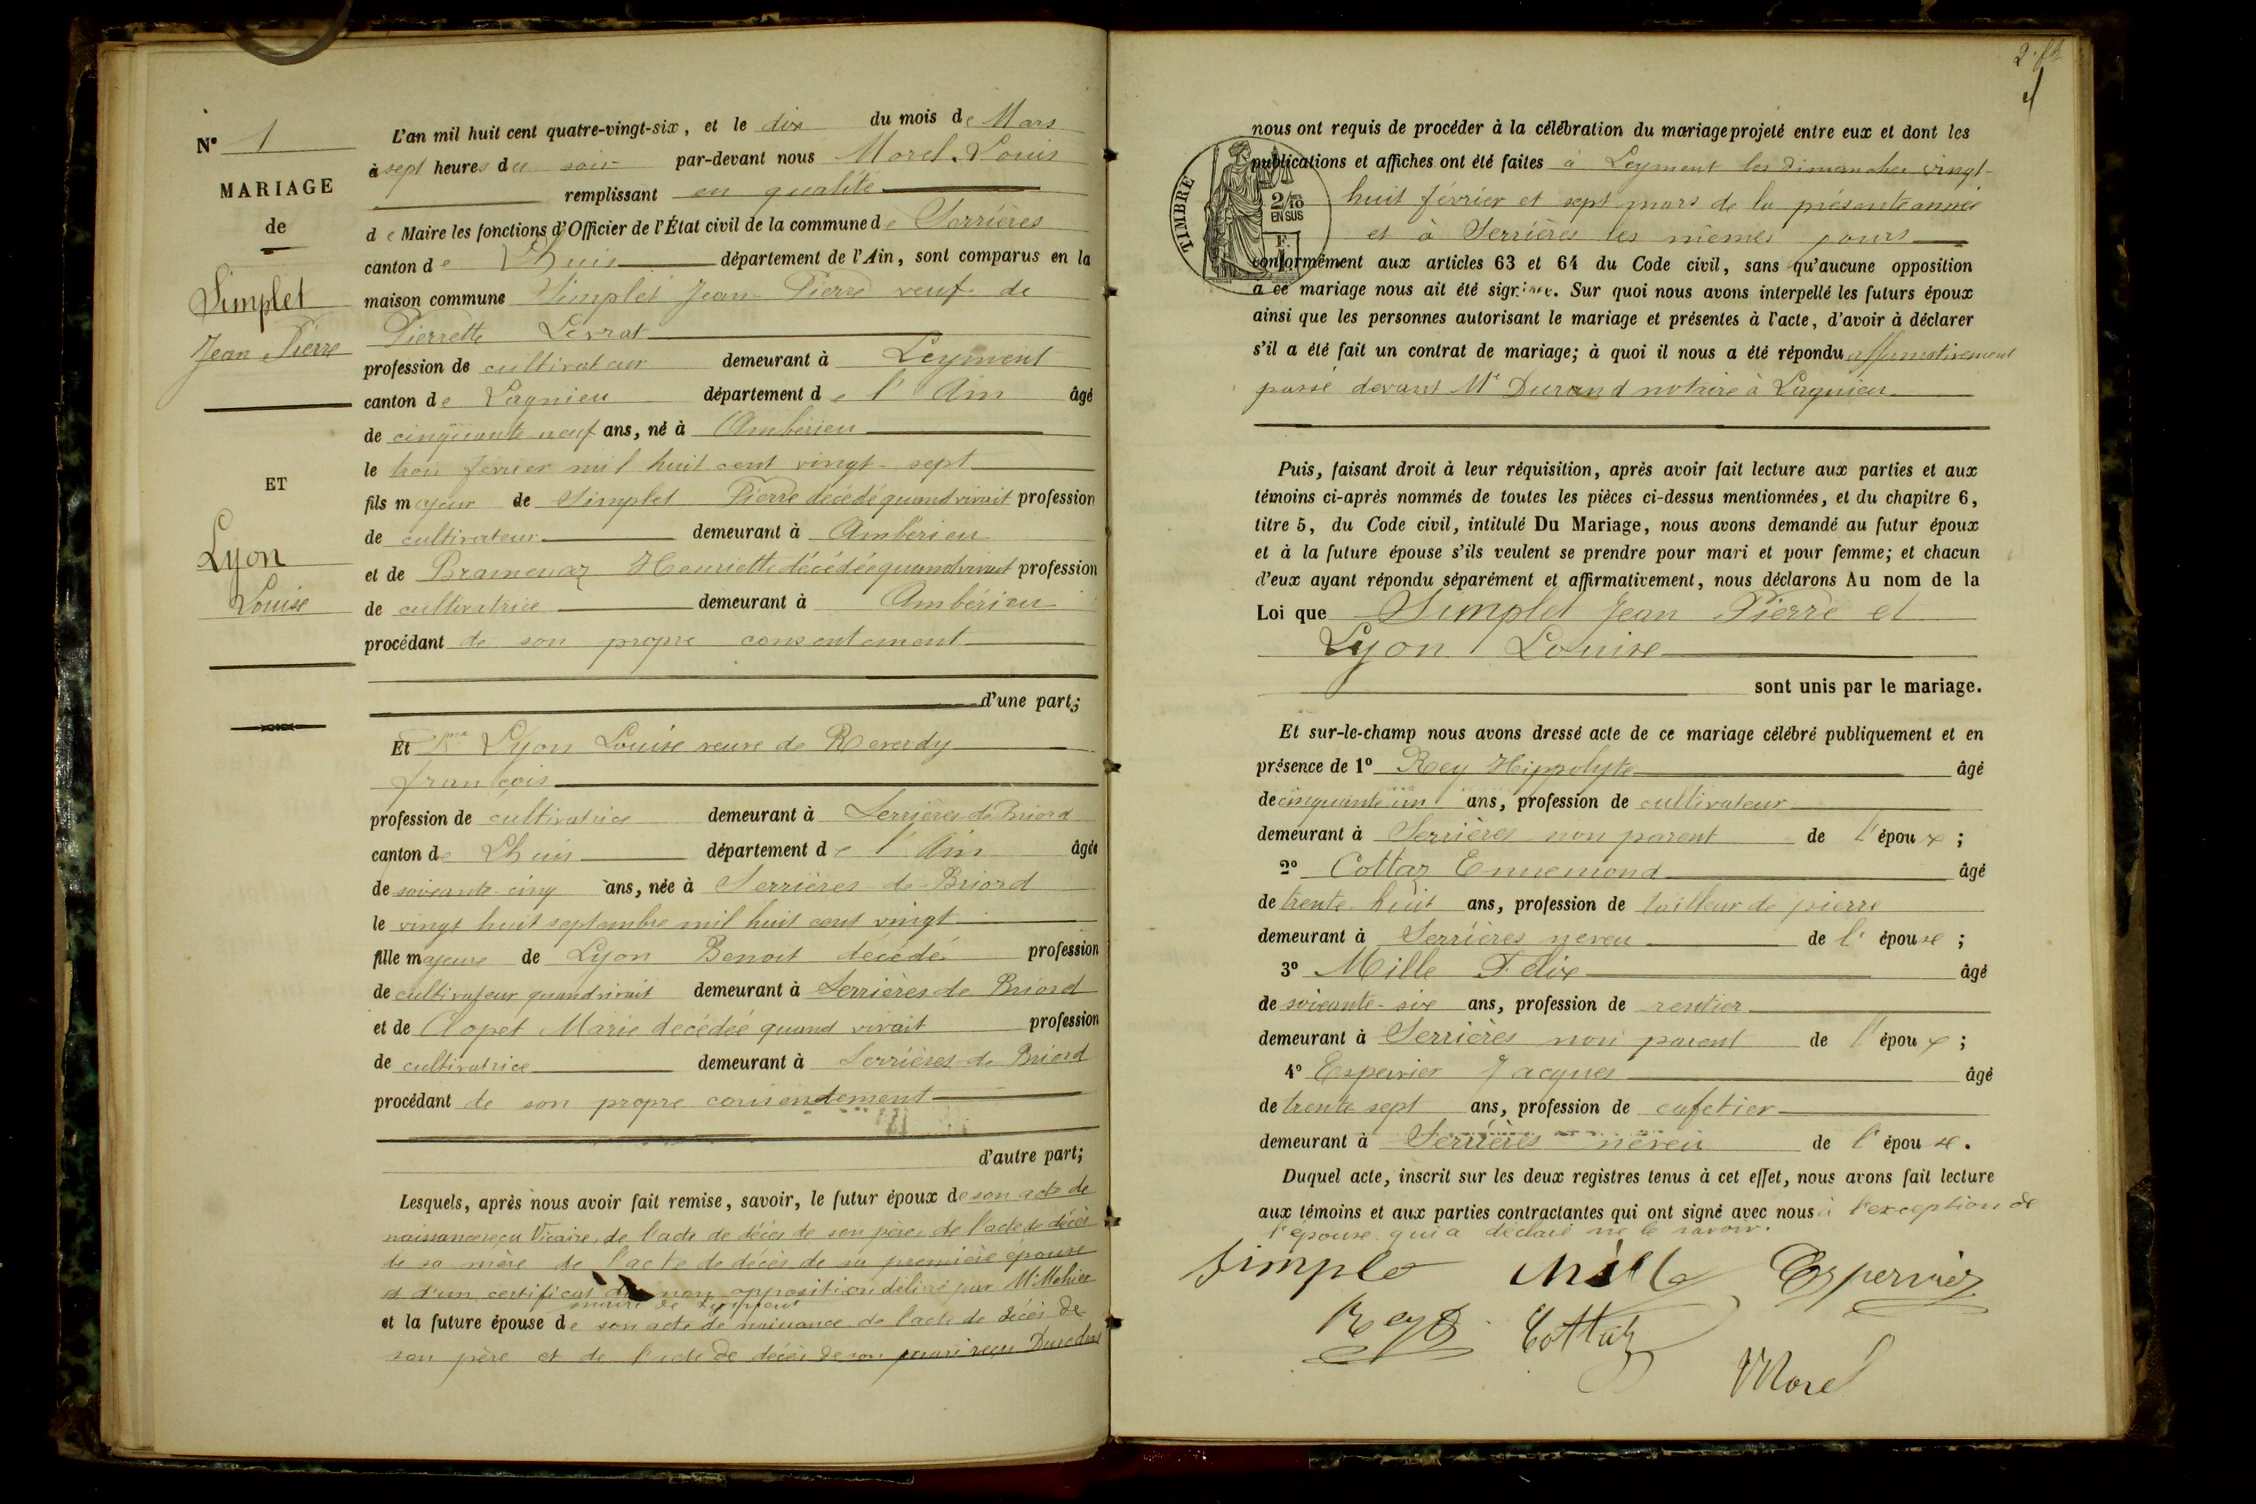 N° 1
MARIAGE
de
Simplet
Jean Pierre
ET
Lyon
Louise
L'an mil huit cent quatre-vingt-six, et le dix du mois de Mars
à sept heures du soir par-devant nous Morel Louis
remplissant en qualité
de Maire les fonctions d'Officier de l'État civil de la commune de Serrières
canton de Lhuis département de l'Ain, sont comparus en la
maison commune Simplet Jean Pierre veuf de
Pierrette Levrat
profession de cultivateur demeurant à Leyment
canton de Lagnieu département de l'Ain âgé
de cinquante neuf ans, né à Ambérieu
le trois février mil huit cent vingt-sept
fils majeur de Simplet Pierre décédé quand vivait profession
de cultivateur demeurant à Ambérieu
et de Henriette décédée quand vivait profession
de cultivatrice demeurant à Ambérieu
procédant de son propre consentement
d'une part;
Et Lyon Louise veuve de Reverdy
françois
profession de cultivatrice demeurant à Serrières de Briord
canton de Lhuis département de l'Ain âgée
de soixante-cinq ans, née à Serrières de Briord
le vingt huit septembre mil huit cent vingt
fille majeure de Lyon Benoit décédé profession
de cultivateur quand vivait demeurant à Serrières de Briord
et de Clopet Marie decédée quand vivait profession
de cultivatrice demeurant à Serrières de Briord
procédant de son propre consentement
d'autre part;
Lesquels, après nous avoir fait remise, savoir, le futur époux de son acte de
naissance reçu Vicaire, de l'acte de décès de son père, de l'acte de décès
de sa mère de l'acte de décès de sa première épouse
et d'un certificat de non opposition délivré par Mr
maire de Leyment
et la future épouse de son acte de naissance de l'acte de décès de
son père et de l'acte de décès de son mari reçu
2
nous ont requis de procéder à la célébration du mariage projeté entre eux et dont les
publications et affiches ont été faites à Leyment les dimanches vingt-
huit février et sept mars de la présente année
et à Serrières les mêmes jours
TIMBRE
2/10
EN SUS
conformément aux articles 63 et 64 du Code civil, sans qu'aucune opposition
à ce mariage nous ait été signifiée. Sur quoi nous avons interpellé les futurs époux
ainsi que les personnes autorisant le mariage et présentes à l'acte, d'avoir à déclarer
s'il a été fait un contrat de mariage; à quoi il nous a été répondu affirmativement
passé devant Me Durand notaire à Lagnieu
Puis, faisant droit à leur réquisition, après avoir fait lecture aux parties et aux
témoins ci-après nommés de toutes les pièces ci-dessus mentionnées, et du chapitre 6,
titre 5, du Code civil, intitulé Du Mariage, nous avons demandé au futur époux
et à la future épouse s'ils veulent se prendre pour mari et pour femme; et chacun
d'eux ayant répondu séparément et affirmativement, nous déclarons Au nom de la
Loi que Simplet Jean Pierre et
Lyon Louise
sont unis par le mariage.
Et sur-le-champ nous avons dressé acte de ce mariage célébré publiquement et en
présence de 1° Rey Hippolyte âgé
de cinquante un ans, profession de cultivateur
demeurant à Serrières non parent de l'époux;
2° Cottaz Ennemond âgé
de trente huit ans, profession de tailleur de pierre
demeurant à Serrières neveu de l'épouse;
3° Mille Félix âgé
de soixante-six ans, profession de rentier
demeurant à Serrières non parent de l'époux;
4° Espervier Jacques âgé
de trente sept ans, profession de cafetier
demeurant à Serrières neveu de l'épouse.
Duquel acte, inscrit sur les deux registres tenus à cet effet, nous avons fait lecture
aux témoins et aux parties contractantes qui ont signé avec nous à l'exception de
l'épouse qui a déclaré ne le savoir.
Simple Mille Espervier
Rey Cottaz
Morel